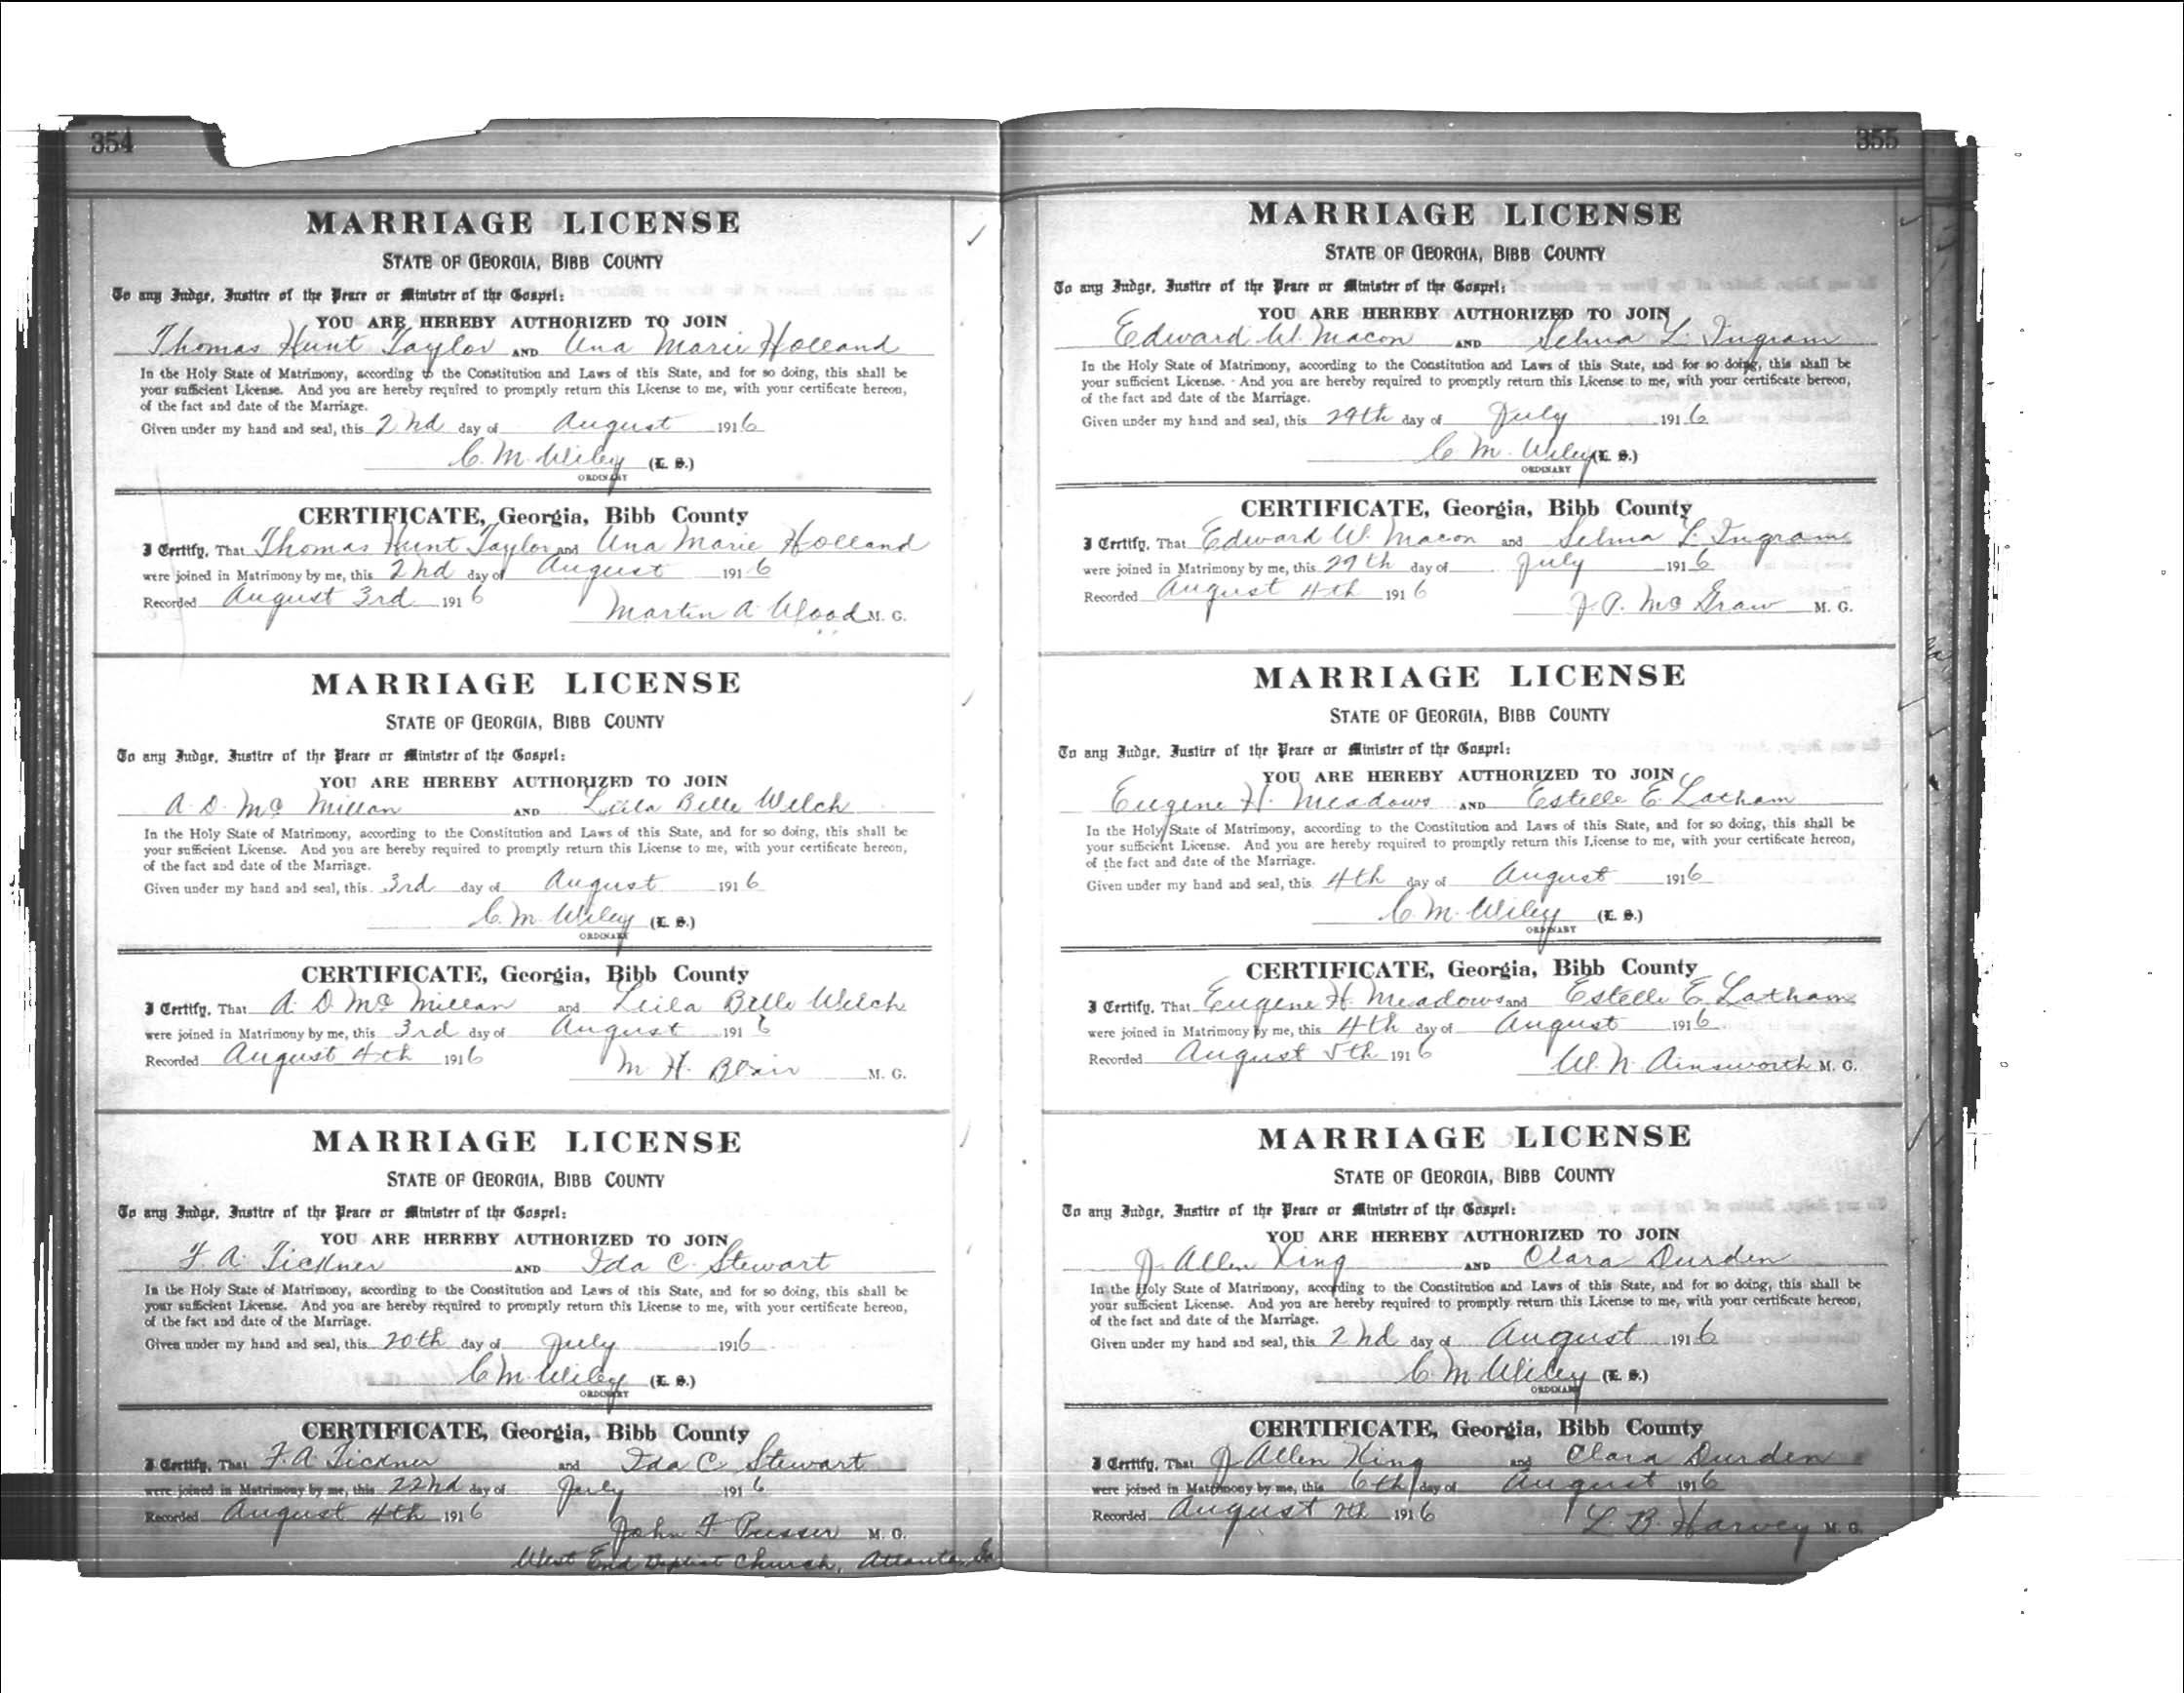 354
MARRIAGE LICENSE
STATE OF GEORGIA, BIBB COUNTY
To any Judge, Justice of the Peace or Minister of the Gospel:
YOU ARE HEREBY AUTHORIZED TO JOIN
Thomas Hunt Taylor AND Una Marie Holland
In the Holy State of Matrimony, according to the Constitution and Laws of this State, and for so doing, this shall be
your sufficient License. And you are hereby required to promptly return this License to me, with your certificate hereon,
of the fact and date of the Marriage.
Given under my hand and seal, this 2nd day of August 1916
C. M. Wiley (L. S.)
ORDINARY
CERTIFICATE, Georgia, Bibb County
I Certify, That Thomas Hunt Taylor and Una Marie Holland
were joined in Matrimony by me, this 2nd day of August 1916
Recorded August 3rd 1916
Martin A. Wood M. G.
MARRIAGE LICENSE
STATE OF GEORGIA, BIBB COUNTY
To any Judge, Justice of the Peace or Minister of the Gospel:
YOU ARE HEREBY AUTHORIZED TO JOIN
A. D. Mc Millan AND Leila Belle Welch
In the Holy State of Matrimony, according to the Constitution and Laws of this State, and for so doing, this shall be
your sufficient License. And you are hereby required to promptly return this License to me, with your certificate hereon,
of the fact and date of the Marriage.
Given under my hand and seal, this 3rd day of August 1916
C. M. Wiley (L. S.)
ORDINARY
CERTIFICATE, Georgia, Bibb County
I Certify, That A. D. Mc Millan and Leila Belle Welch
were joined in Matrimony by me, this 3rd day of August 1916
Recorded August 4th 1916
M. H. Blair M. G.
MARRIAGE LICENSE
STATE OF GEORGIA, BIBB COUNTY
To any Judge, Justice of the Peace or Minister of the Gospel:
YOU ARE HEREBY AUTHORIZED TO JOIN
F. A. Tickner AND Ida C. Stewart
In the Holy State of Matrimony, according to the Constitution and Laws of this State, and for so doing, this shall be
your sufficient License. And you are hereby required to promptly return this License to me, with your certificate hereon,
of the fact and date of the Marriage.
Given under my hand and seal, this 20th day of July 1916
C. M. Wiley (L. S.)
ORDINARY
CERTIFICATE, Georgia, Bibb County
I Certify, That F. A. Tickner and Ida C. Stewart
were joined in Matrimony by me, this 22nd day of July 1916
Recorded August 4th 1916
John F. Purser M. G.
West End Baptist Church, Atlanta, Ga
355
MARRIAGE LICENSE
STATE OF GEORGIA, BIBB COUNTY
To any Judge, Justice of the Peace or Minister of the Gospel:
YOU ARE HEREBY AUTHORIZED TO JOIN
Edward W. Macon AND Selma L. Ingram
In the Holy State of Matrimony, according to the Constitution and Laws of this State, and for so doing, this shall be
your sufficient License. And you are hereby required to promptly return this License to me, with your certificate hereon,
of the fact and date of the Marriage.
Given under my hand and seal, this 29th day of July 1916
C. M. Wiley (L. S.)
ORDINARY
CERTIFICATE, Georgia, Bibb County
I Certify, That Edward W. Macon and Selma L. Ingram
were joined in Matrimony by me, this 29th day of July 1916
Recorded August 4th 1916
J. P. Mc Graw M. G.
MARRIAGE LICENSE
STATE OF GEORGIA, BIBB COUNTY
To any Judge, Justice of the Peace or Minister of the Gospel:
YOU ARE HEREBY AUTHORIZED TO JOIN
Eugene H. Meadows AND Estelle E. Latham
In the Holy State of Matrimony, according to the Constitution and Laws of this State, and for so doing, this shall be
your sufficient License. And you are hereby required to promptly return this License to me, with your certificate hereon,
of the fact and date of the Marriage.
Given under my hand and seal, this 4th day of August 1916
C. M. Wiley (L. S.)
ORDINARY
CERTIFICATE, Georgia, Bibb County
I Certify, That Eugene H. Meadows and Estelle E. Latham
were joined in Matrimony by me, this 4th day of August 1916
Recorded August 5th 1916
W. N. Ainsworth M. G.
MARRIAGE LICENSE
STATE OF GEORGIA, BIBB COUNTY
To any Judge, Justice of the Peace or Minister of the Gospel:
YOU ARE HEREBY AUTHORIZED TO JOIN
J. Allen King AND Clara Durden
In the Holy State of Matrimony, according to the Constitution and Laws of this State, and for so doing, this shall be
your sufficient License. And you are hereby required to promptly return this License to me, with your certificate hereon,
of the fact and date of the Marriage.
Given under my hand and seal, this 2nd day of August 1916
C. M. Wiley (L. S.)
ORDINARY
CERTIFICATE, Georgia, Bibb County
I Certify, That J. Allen King and Clara Durden
were joined in Matrimony by me, this 6th day of August 1916
Recorded August 7th 1916
L. B. Harvey M. G.